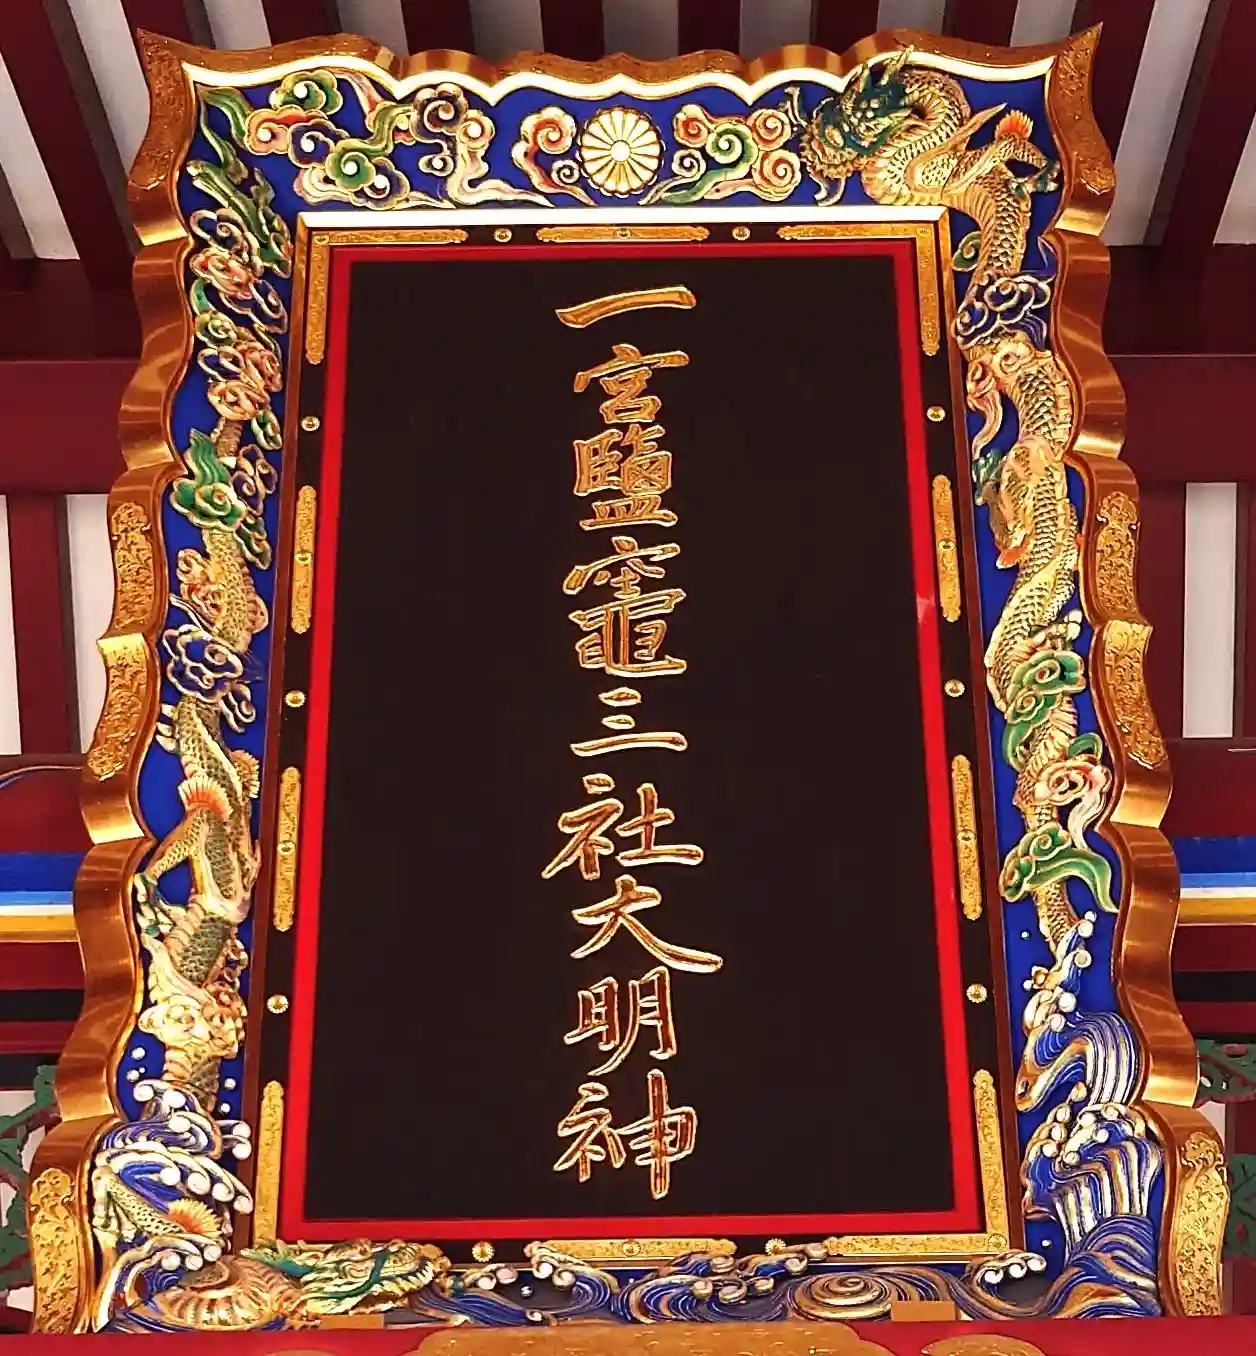 一宮鹽竈三社大明神